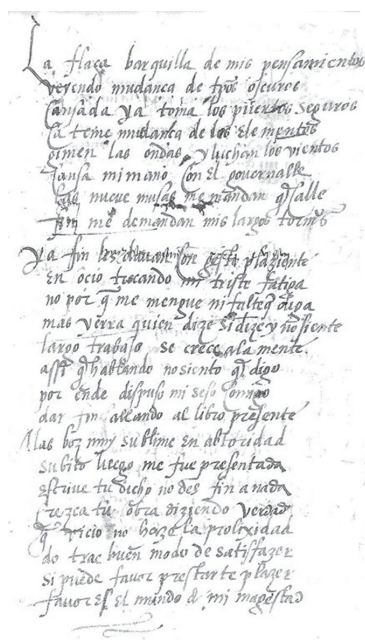 La flaca barquilla de mis pensamientos
veyendo mudança de tpos oscuros
Cansada ya toma los puertos seguros
Ca teme mudança de los elementos
gimen las ondas y luchan los vientos
Cansa mi mano con el governalle
las nueve musas me mandan q calle
fin me demandan mis largos torm
ya fin les con gesto plaziente
en ocio trocando mi triste fatiga
no por q me mengue ni falte q diga
mas yerra quien dize si dize y no siente
largo trabajo se crece a la mente
assi q hablando no siento q digo
por ende dispuso mi seso comigo
dar fin al libro presente
Mas boz muy sublime en abtoridad
subito luego me fue presentada
escrive tu dicho no des fin a nada
crezca tu obra diziendo verdad
q vicio no haze la prolixidad
do trae buen modo de satisfazer
si puede favor prestarte plazer
favor es el mundo d mi magestad